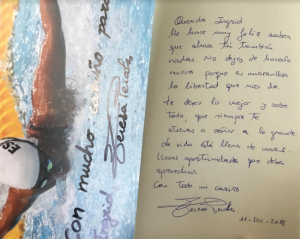 Con mucho cariño para
Ingrid
Teresa Perales
ES
Querida Ingrid
Me hace muy feliz saber
que ahora tú también
nadas. No dejes de hacerlo
nunca porque es maravillosa
la libertad que nos da
te deseo lo mejor y sobre
todo, que siempre te
atrevas a soñar a lo grande.
la vida está llena de nuevas
oportunidades que debes
aprovechar.
Con todo mi cariño
Teresa Perales
11-Dic-2018